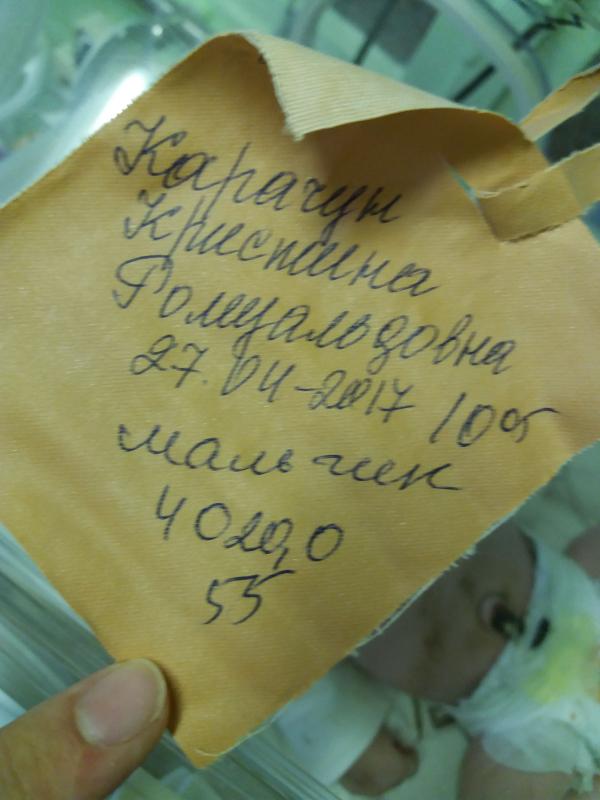 Карачун
Кристина
Ромуальдовна
27.04-2017 10 05
мальчик
4020,0
55